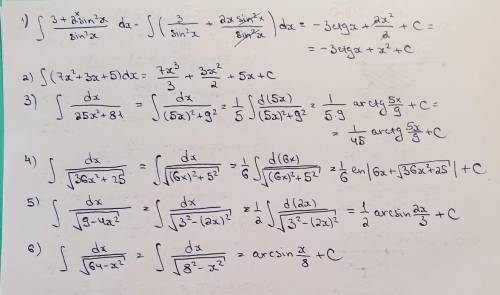 1) ∫ (3+2ˣsin²x)/(sin²x) dx - ∫(3/sin²x + 2x sin²x/sin²x)dx = -3ctgx + 2x²/2 + C =
= -3ctgx + x² + C
2) ∫(7x²+3x+5)dx = 7x³/3 + 3x²/2 + 5x + C
3) ∫ dx/(25x²+81) = ∫ dx/((5x)²+9²) = 1/5 ∫ d(5x)/((5x)²+9²) = 1/(5·9) arctg 5x/9 + C =
= 1/45 arctg 5x/9 + C
4) ∫ dx/√(36x²+25) = ∫ dx/√((6x)²+5²) = 1/6 ∫ d(6x)/√((6x)²+5²) = 1/6 ln|6x+√(36x²+25)| + C
5) ∫ dx/√(9-4x²) = ∫ dx/√(3²-(2x)²) = 1/2 ∫ d(2x)/√(3²-(2x)²) = 1/2 arcsin 2x/3 + C
6) ∫ dx/√(64-x²) = ∫ dx/√(8²-x²) = arcsin x/8 + C